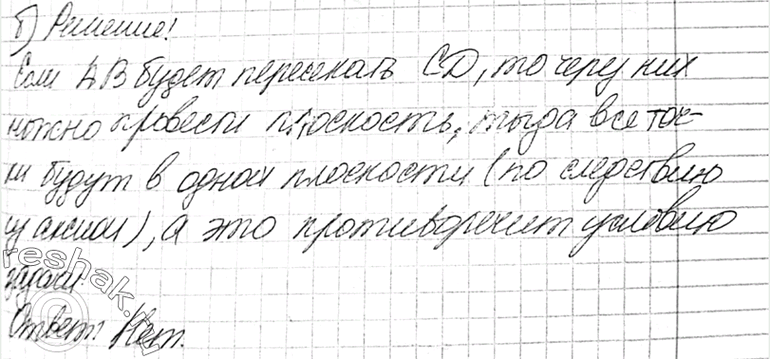 б) Решение!
Если АВ будет пересекать CD, то через них
можно провести плоскость, тогда все точ-
ки будут в одной плоскости (по следствию
из аксиом), а это противоречит условию
задачи.
Ответ: Нет.
reshak.ru